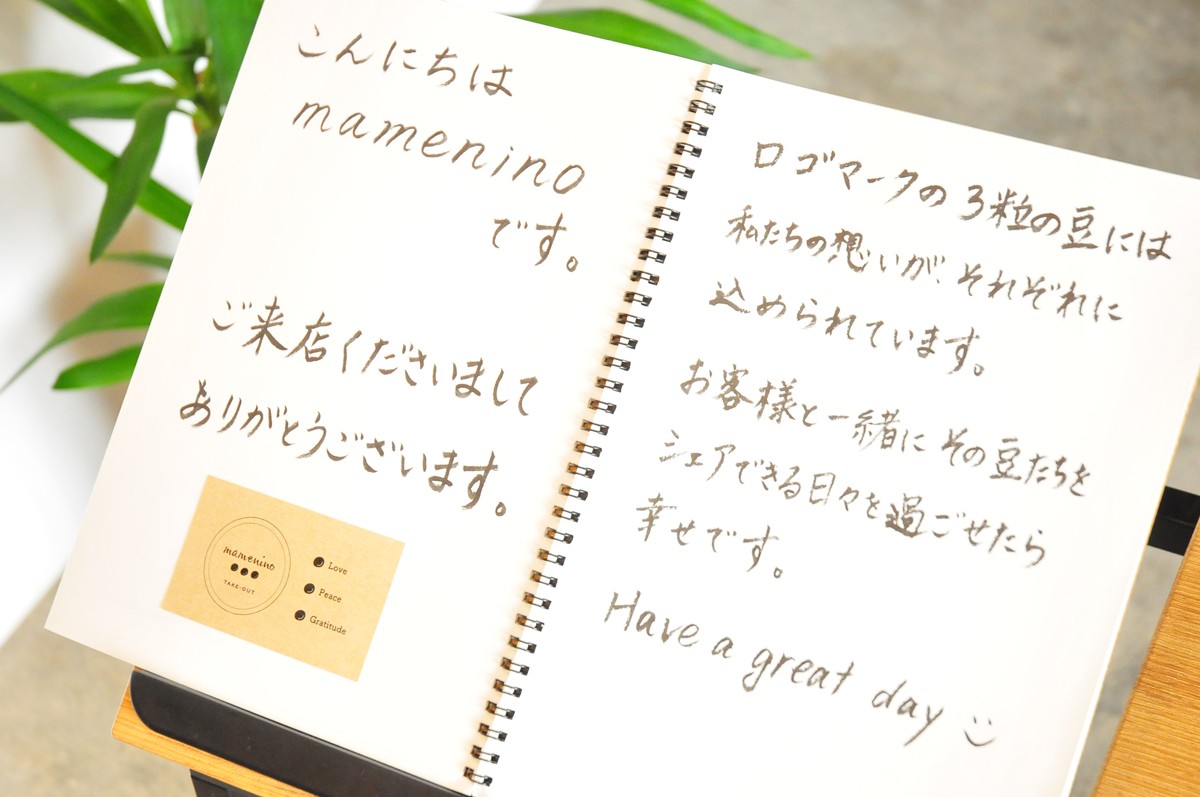 こんにちは
mamenino
です。
ご来店くださいまして
ありがとうございます。
mamenino
TAKE-OUT
Love
Peace
Gratitude
ロゴマークの3粒の豆には
私たちの想いが、それぞれに
込められています。
お客様と一緒にその豆たちを
シェアできる日々を過ごせたら
幸せです。
Have a great day